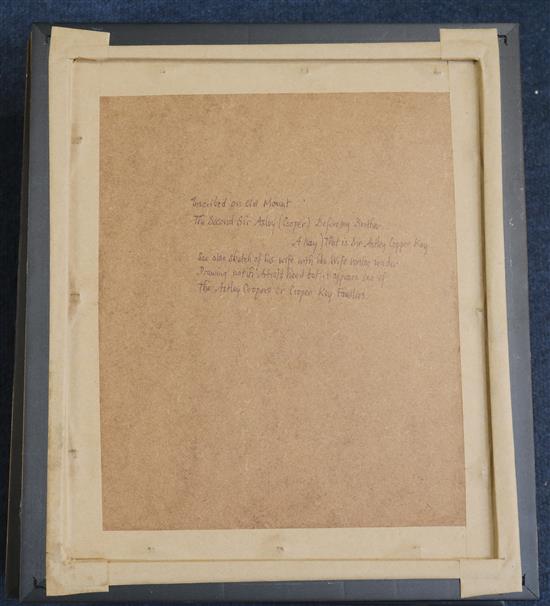 Inscribed on Old Mount
The Second Sir Astley (Cooper) Before my Brother
A Kay) That is Sir Astley Cooper Key
See also sketch of his wife with his Wife under
Drawing not in hand but it appears one of
The Astley Coopers or Cooper Key Families